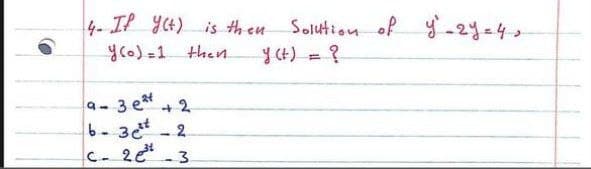 4- If y(t) is then Solution of y' - 2y = 4,
y(0) = 1 then y(t) = ?
a- 3e^2t + 2
b- 3e^2t - 2
c- 2e^3t - 3